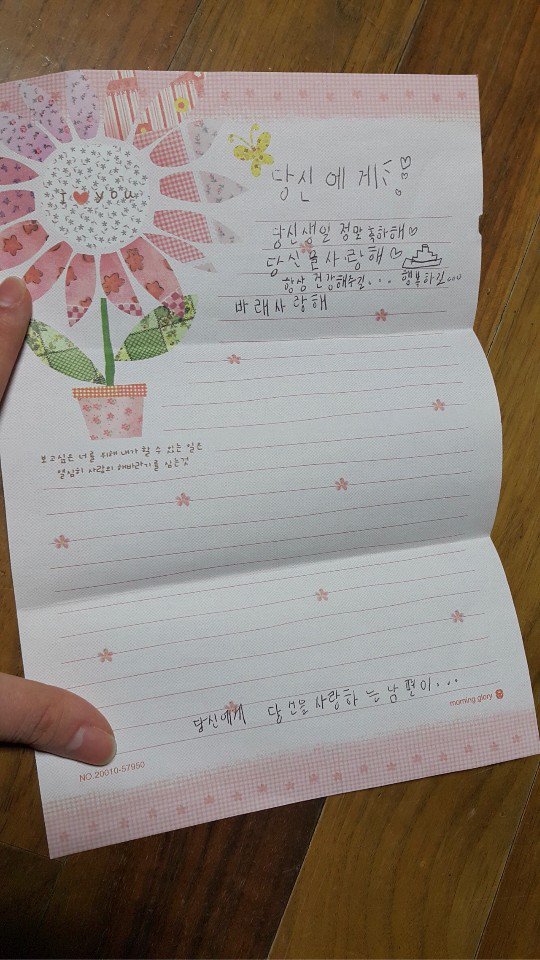 I ♥ you
당신에게
당신생일 정말축하해♡
당신을사랑해♡
항상 건강해주길... 행복하길...
바래사랑해
보고싶은 너를 위해 내가 할 수 있는 일은
열심히 사랑의 해바라기를 심는것
당신에게 당신을사랑하는남편이...
morning glory
NO.20010-57950